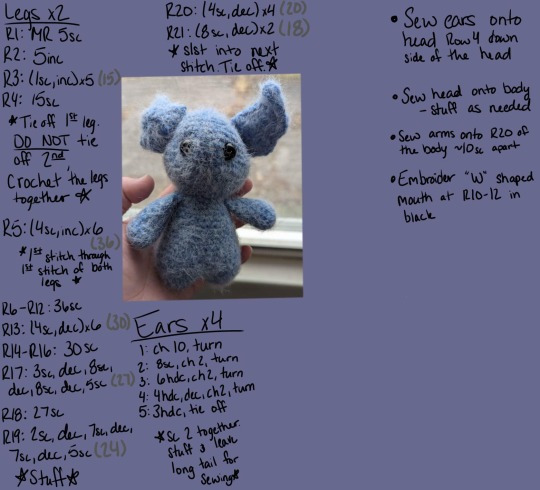 Legs x2
R1: MR 5sc
R2: 5inc
R3: (1sc, inc)x5 (15)
R4: 15sc
*Tie off 1st leg.
DO NOT tie
off 2nd
Crochet the legs
together *
R5: (4sc, inc)x6
(36)
*1st stitch through
1st stitch of both
legs *
R6-R12: 36sc
R13: (4sc, dec)x6 (30)
R14-R16: 30sc
R17: 3sc, dec, 8sc,
dec, 8sc, dec, 5sc (27)
R18: 27sc
R19: 2sc, dec, 7sc, dec,
7sc, dec, 5sc (24)
*Stuff*
R20: (4sc, dec)x4 (20)
R21: (8sc, dec)x2 (18)
* slst into next
stitch. Tie off. *
Ears x4
1: ch 10, turn
2: 8sc, ch2, turn
3: 6hdc, ch2, turn
4: 4hdc, dec, ch2, turn
5: 3hdc, tie off
*sc 2 together.
stuff & leave
long tail for
sewing*
• Sew ears onto
head Row 4 down
side of the head
• Sew head onto body
- stuff as needed
• Sew arms onto R20 of
the body ~10sc apart
• Embroider "W" shaped
mouth at R10-12 in
black